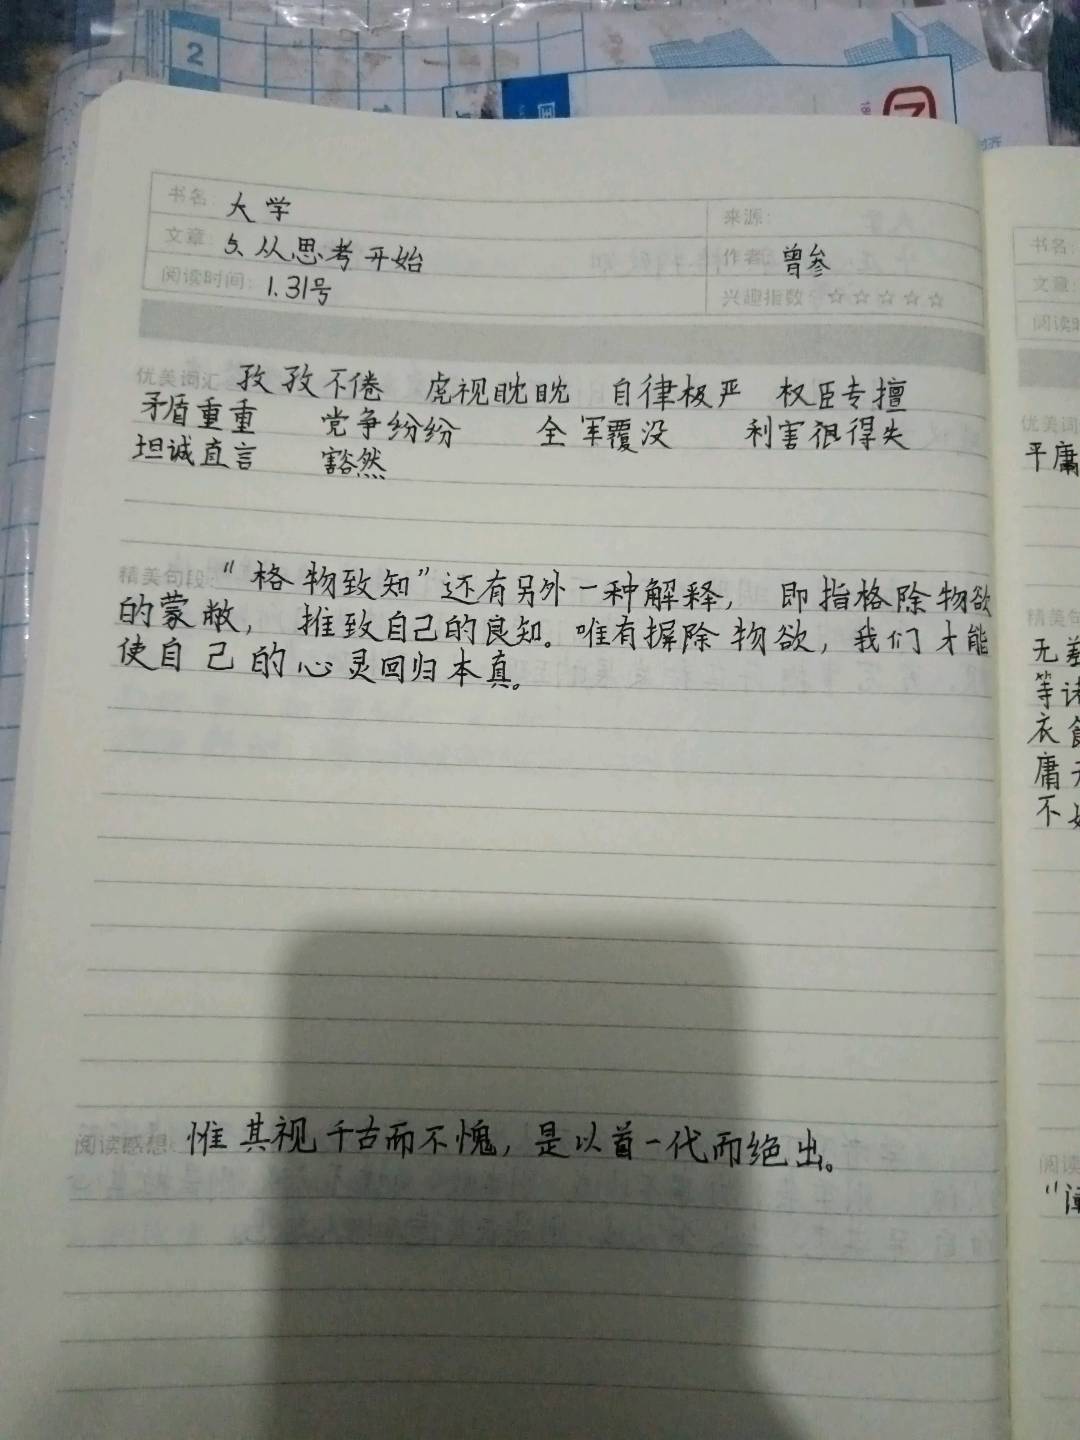 2
书名: 大学
来源:
文章: 5、从思考开始
作者: 曾参
阅读时间: 1.31号
兴趣指数: ☆☆☆☆☆
优美词汇 孜孜不倦 虎视眈眈 自律极严 权臣专擅
矛盾重重 党争纷纷 全军覆没 利害很得失
坦诚直言 豁然
精美句段: “格物致知”还有另外一种解释, 即指格除物欲
的蒙敝, 推致自己的良知。唯有摒除物欲, 我们才能
使自己的心灵回归本真。
阅读感想: 惟其视千古而不愧, 是以首一代而绝出。
书名:
文章:
阅读时
优美词
平庸
精美句
无差
等诸
衣食
庸
不
阅读